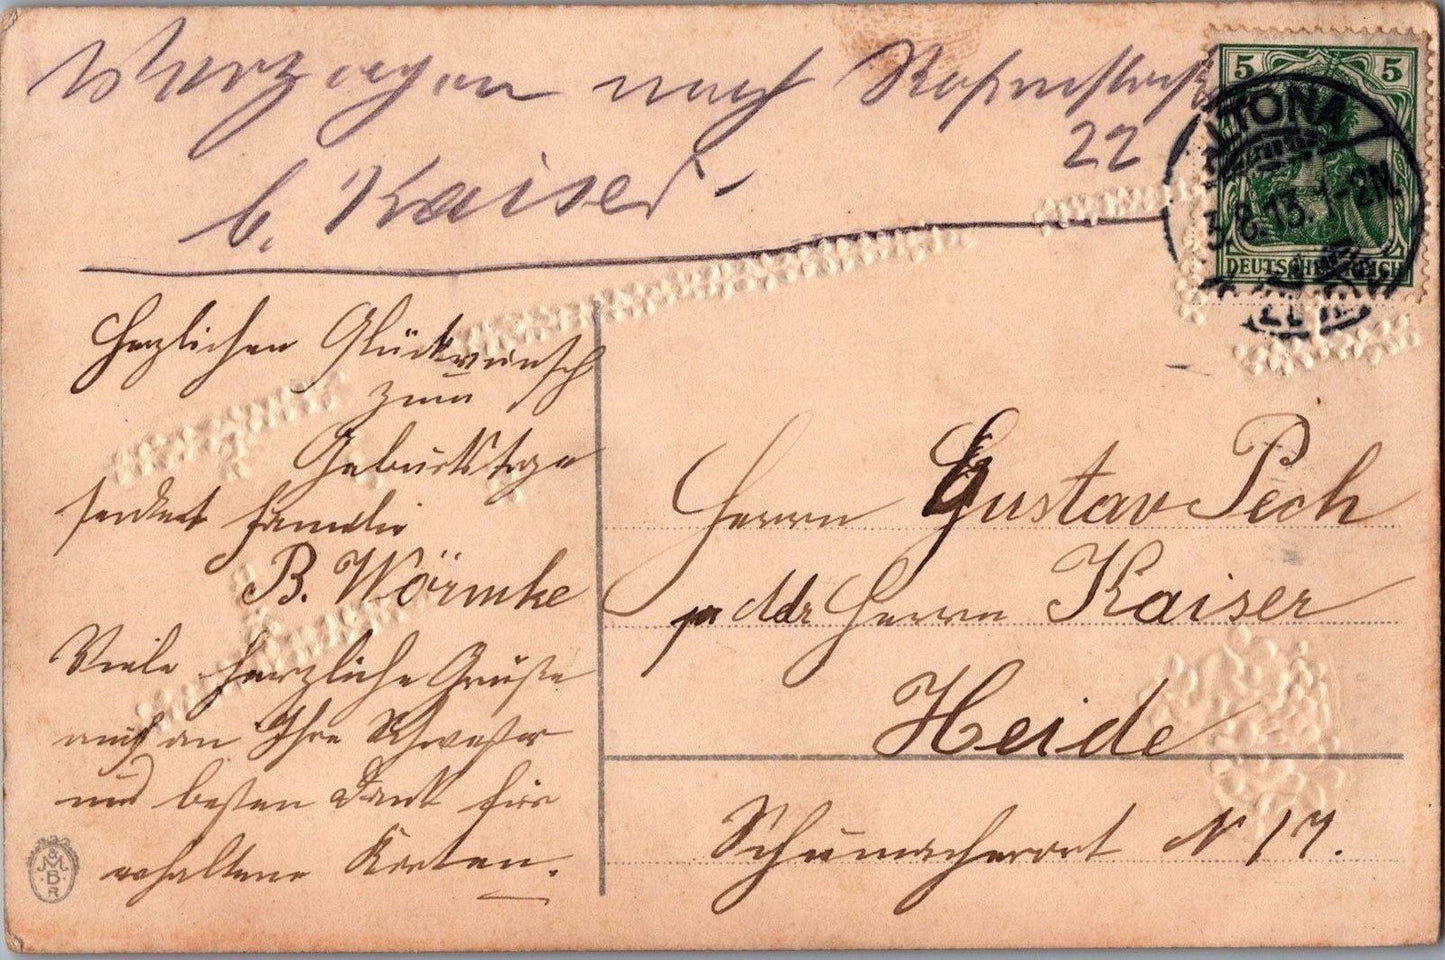 Verzogen nach
22
b. Kaiser.
5 5
ALTONA
3.8.13. 1-2N.
DEUTSCHES REICH
Herzlichen Glückwunsch
zum
Geburtstage
sendet Familie
B. Wörmke
Viele herzliche Grüße
auch an Ihre Schwester
und besten Dank für
erhaltene Karten.
Herrn Gustav Pech
Herrn Kaiser
Heide
Schumacherort N 17.